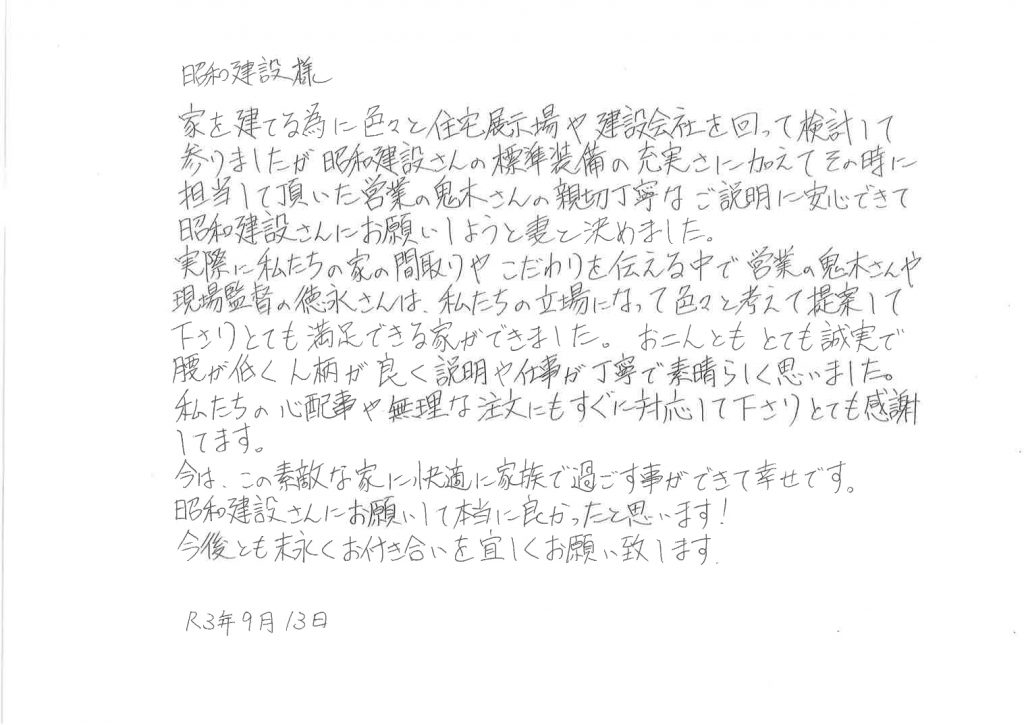 昭和建設様
家を建てる為に色々と住宅展示場や建設会社を回って検討して
参りましたが昭和建設さんの標準装備の充実さに加えてその時に
担当して頂いた営業の鬼木さんの親切丁寧なご説明に安心できて
昭和建設さんにお願いしようと妻と決めました。
実際に私たちの家の間取りやこだわりを伝える中で営業の鬼木さんや
現場監督の徳永さんは、私たちの立場になって色々と考えて提案して
下さりとても満足できる家ができました。お二人とも とても誠実で
腰が低く人柄が良く説明や仕事が丁寧で素晴らしく思いました。
私たちの心配事や無理な注文にもすぐに対応して下さりとても感謝
してます。
今は、この素敵な家に快適に家族で過ごす事ができて幸せです。
昭和建設さんにお願いして本当に良かったと思います!
今後とも末永くお付き合いを宜しくお願い致します.
R3年9月13日